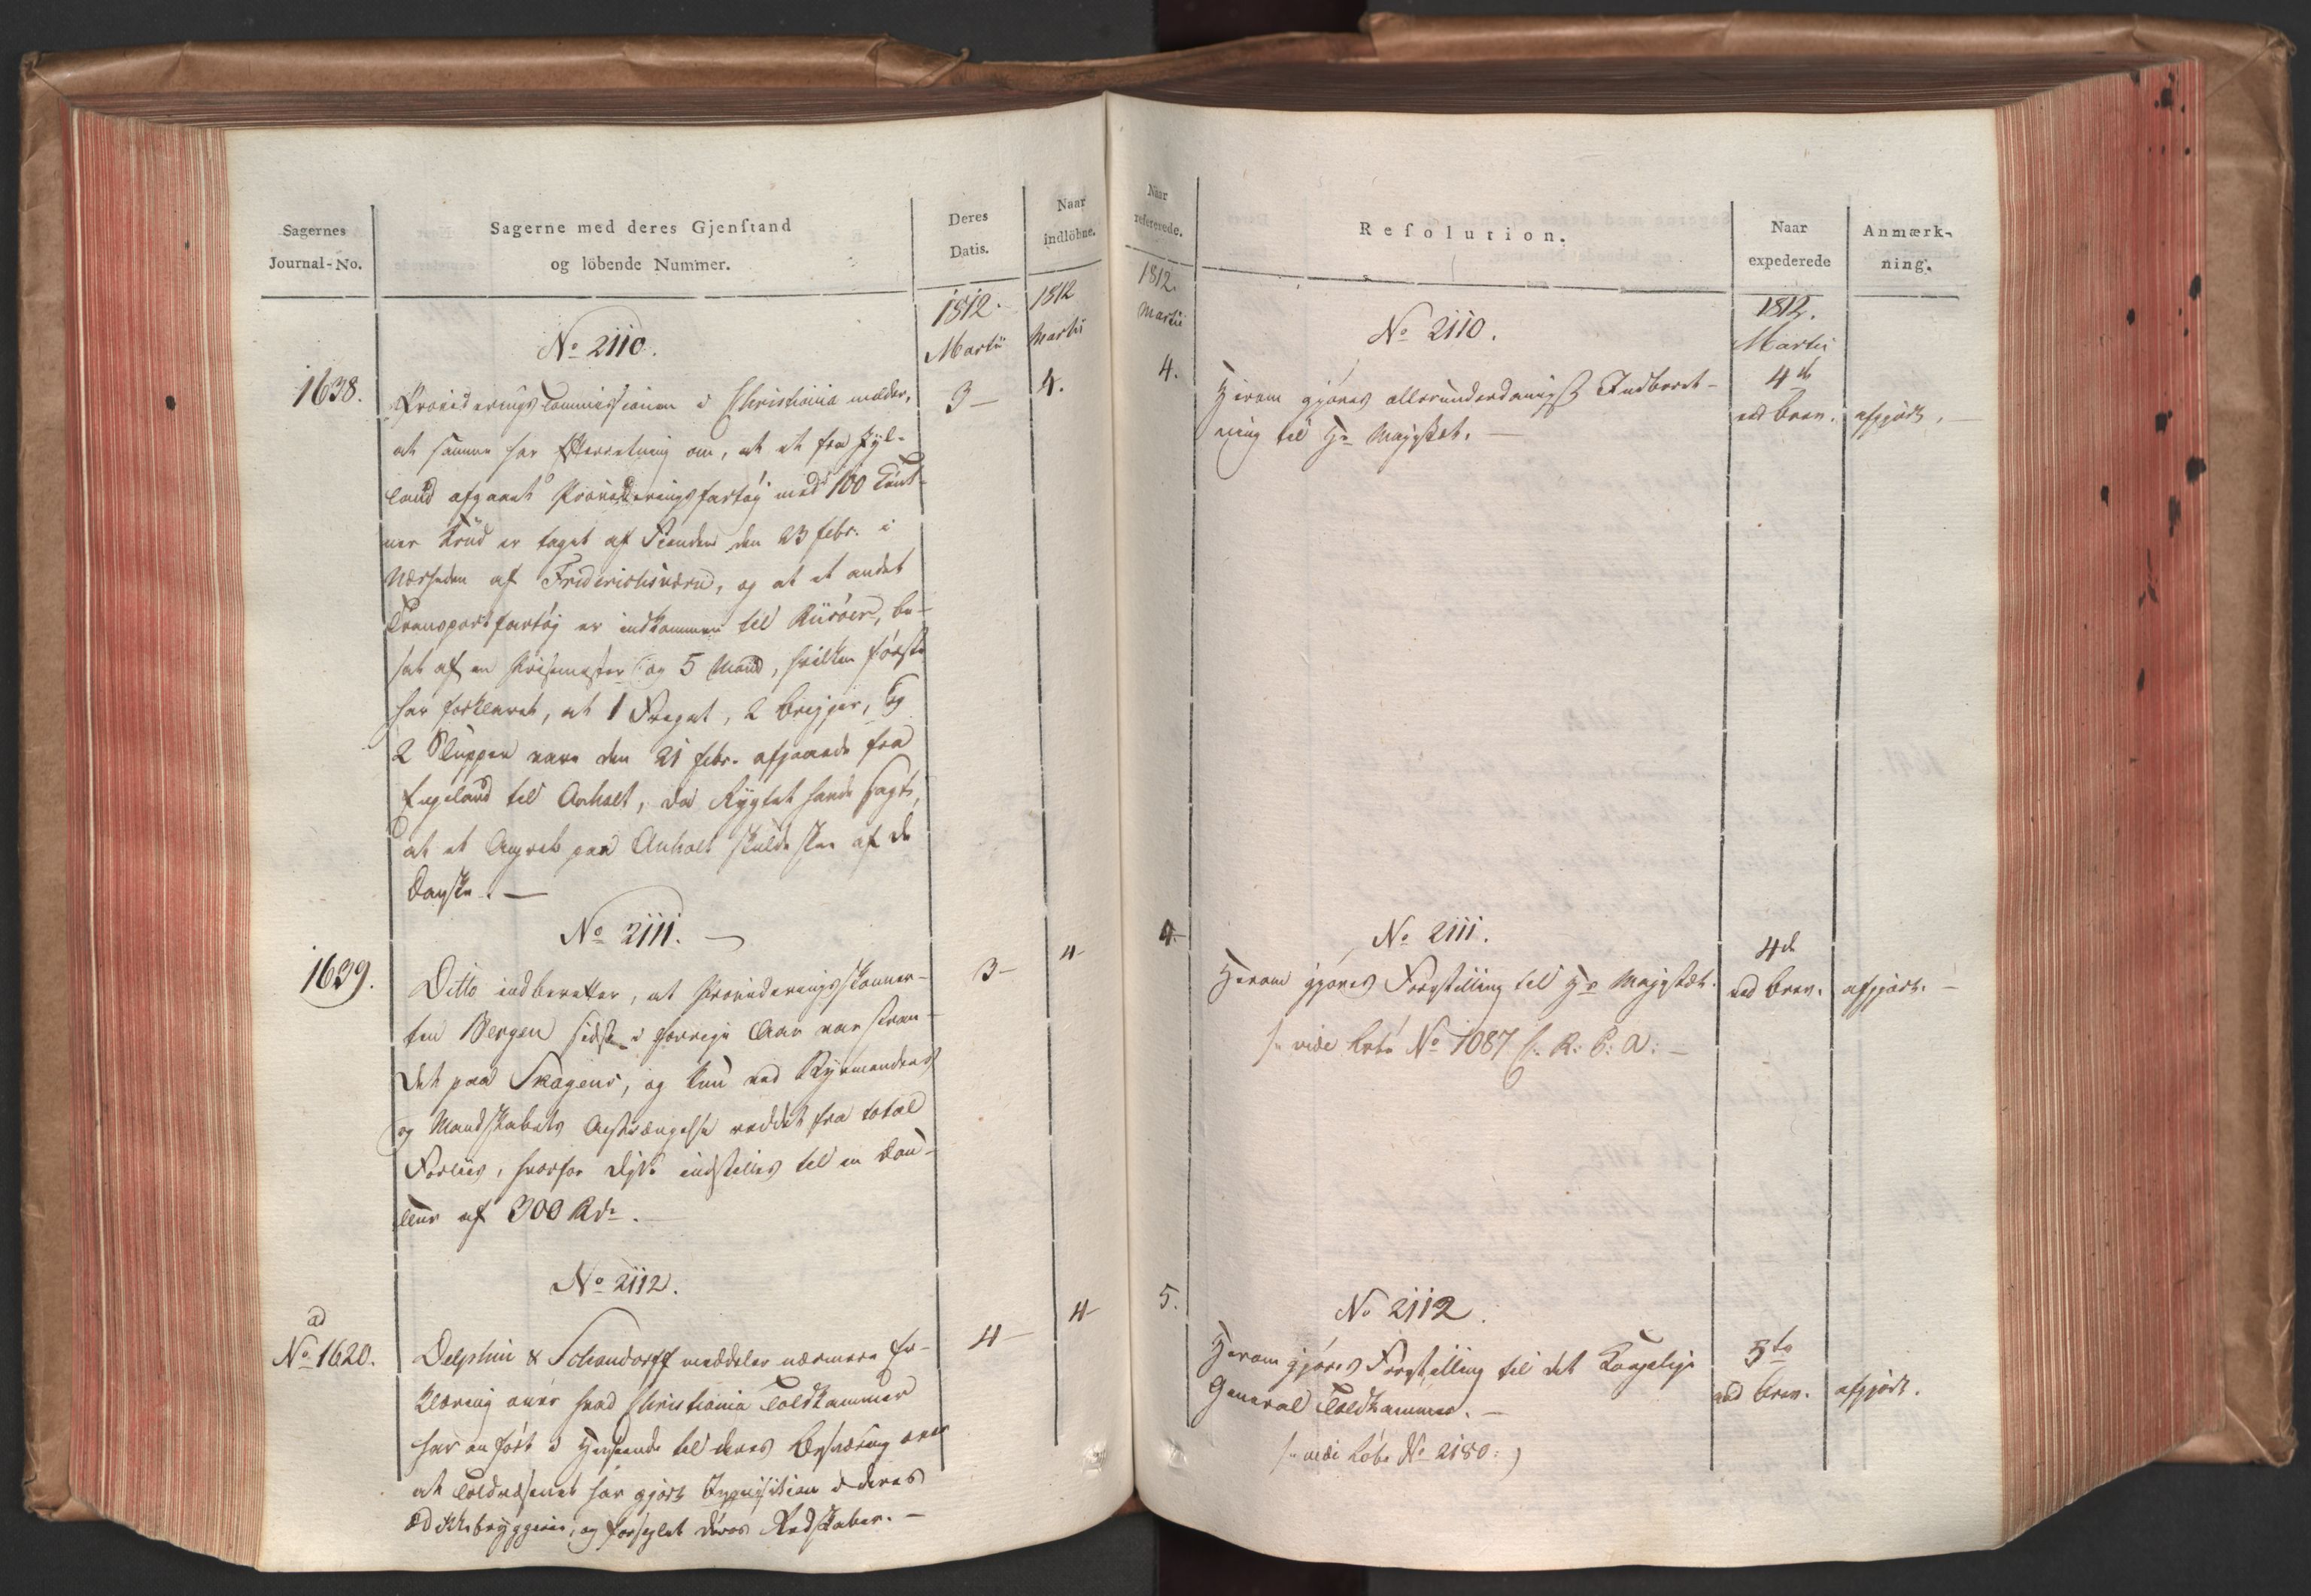 Sagernes
Journal-No.
Sagerne med deres Gjenstand
og löbende Nummer.
Deres
Datis.
Naar
indlöbne.
1812.
Martii
1812
Martii
No 2110.
1638.
Provideringscommissionen i Christiania melder,
3-
4.
at samme har Efterretning om, at et fra Jyl-
land afgaaet Provideringsfartøj med 100 Cent-
ner Krud er taget af Fienden den 23 febr. i
Nærheden af Friderichsværn, og at et andet
Transportfartøj er indkommen til Riisöer, be-
sat af en Prisemester og 5 Mand, hvilken første
har forklaret, at 1 Fregat, 2 Brigger, og
2 Slupper vare den 21 febr. afgaaede fra
Engeland til Anholt, da Rygtet havde sagt,
at et Angreb paa Anholt skulde skee af de
Danske. —
No 2111. —
1639.
Ditto indberetter, at Provideringsskonner-
3-
4-
ten Bergen sidst i forrige Aar var stran-
det paa Skagens, og kun ved Styrmandens
og Mandskabets Anstrængelse reddet fra total
Forliis, hvorfor indstilles til en Dou-
ceur af 300 Rdr.
No 2112.
ad
No 1620.
Delphin & Schandorff meddeler nærmere Er-
4-
4-
klæring over hvad Christiania Toldkammer
har anført i Henseende til deres Besværing over
at Toldvæsenet har gjort Inqvisition i deres
Ædikkebryggerie, og forseglet deres Redskaber. —
Naar
refererede.
Resolution.
Naar
expederede
Anmærk-
ning.
1812.
Martii
1812.
Martii
No 2110.
4.
Herom gjøres allerunderdanigst Indberet-
4de
ning til Hs Majestæt. —
ved Brev.
afgjort. —
No 2111.
4-
Herom gjøres Forestilling til Hs Majestæt.
4de
ved Brev.
afgjort. —
/: vide No 1087 R: P: A: —
No 2112.
5.
Herom gjøres Forestilling til det Kongelige
5te
General Toldkammer. —
ved Brev.
afgjort.
/: vide Løbe No 2180:)